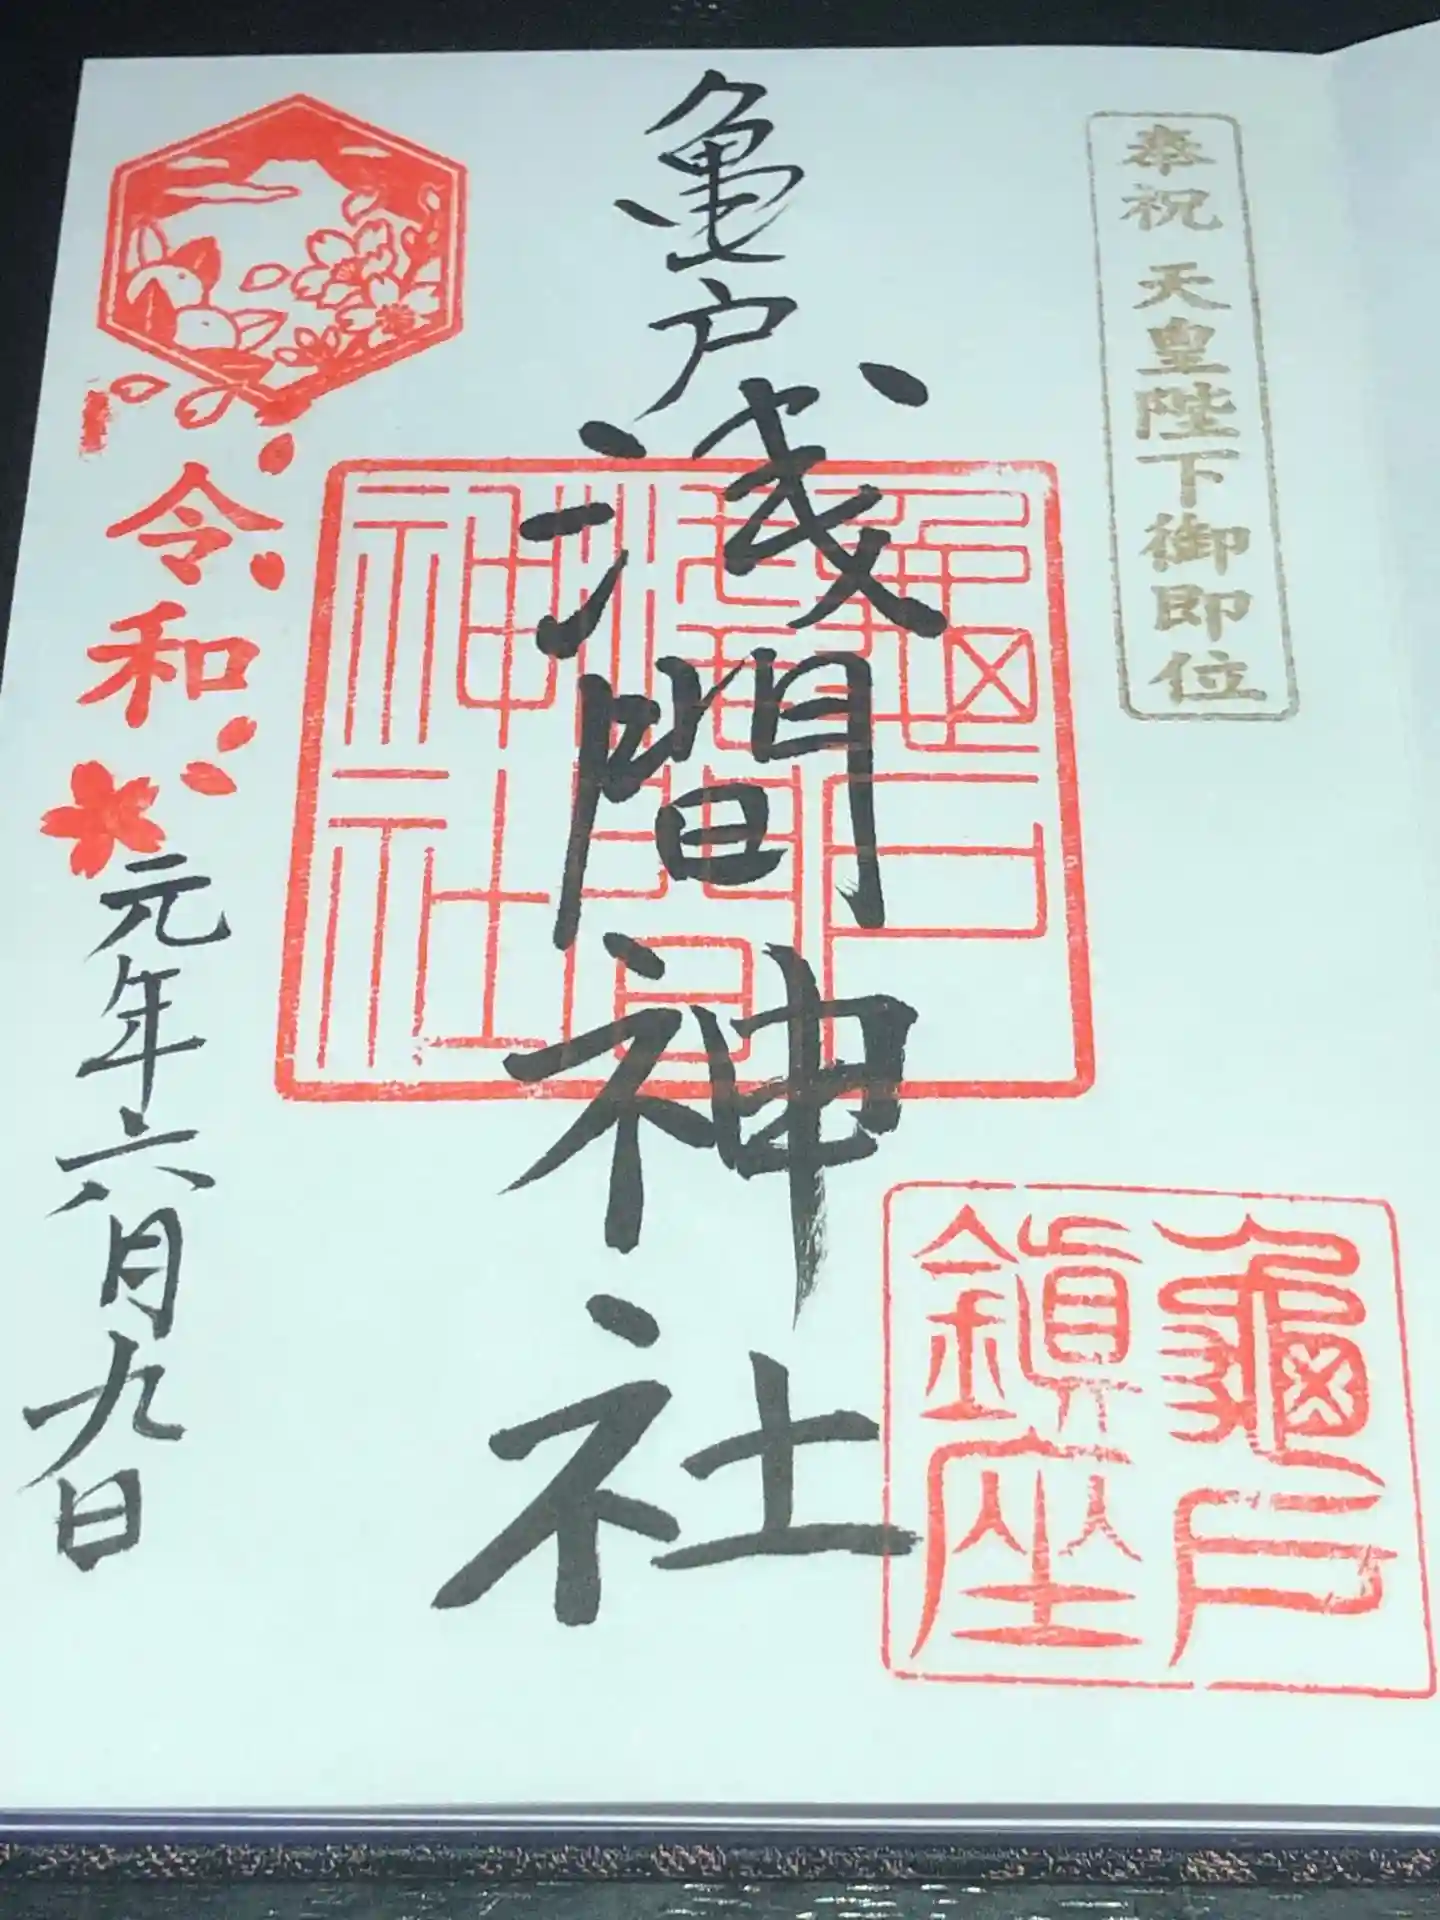 奉祝 天皇陛下御即位
亀戸浅間神社
龜戸
淺間
神社
龜戸
鎮座
令和
元年六月九日